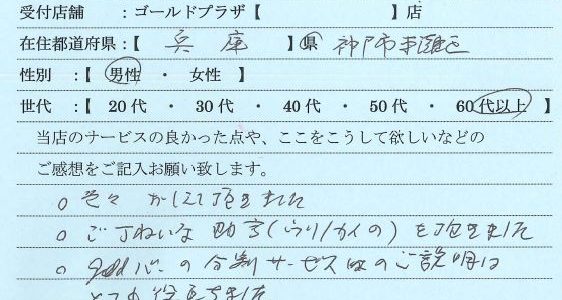 受付店舗 ：ゴールドプラザ【 】店
在住都道府県：【 兵庫 】県 神戸市東灘区
性別 ：【 男性 ・ 女性 】
世代 ：【 20代 ・ 30代 ・ 40代 ・ 50代 ・ 60代以上 】
当店のサービスの良かった点や、ここをこうして欲しいなどの
ご感想をご記入お願い致します。
○ 色々 かしえて頂きました
○ ご丁ねいな 助言(うり/かいの)を頂きました
○ goldバーの分割サービス のご説明は
とても役立ちました